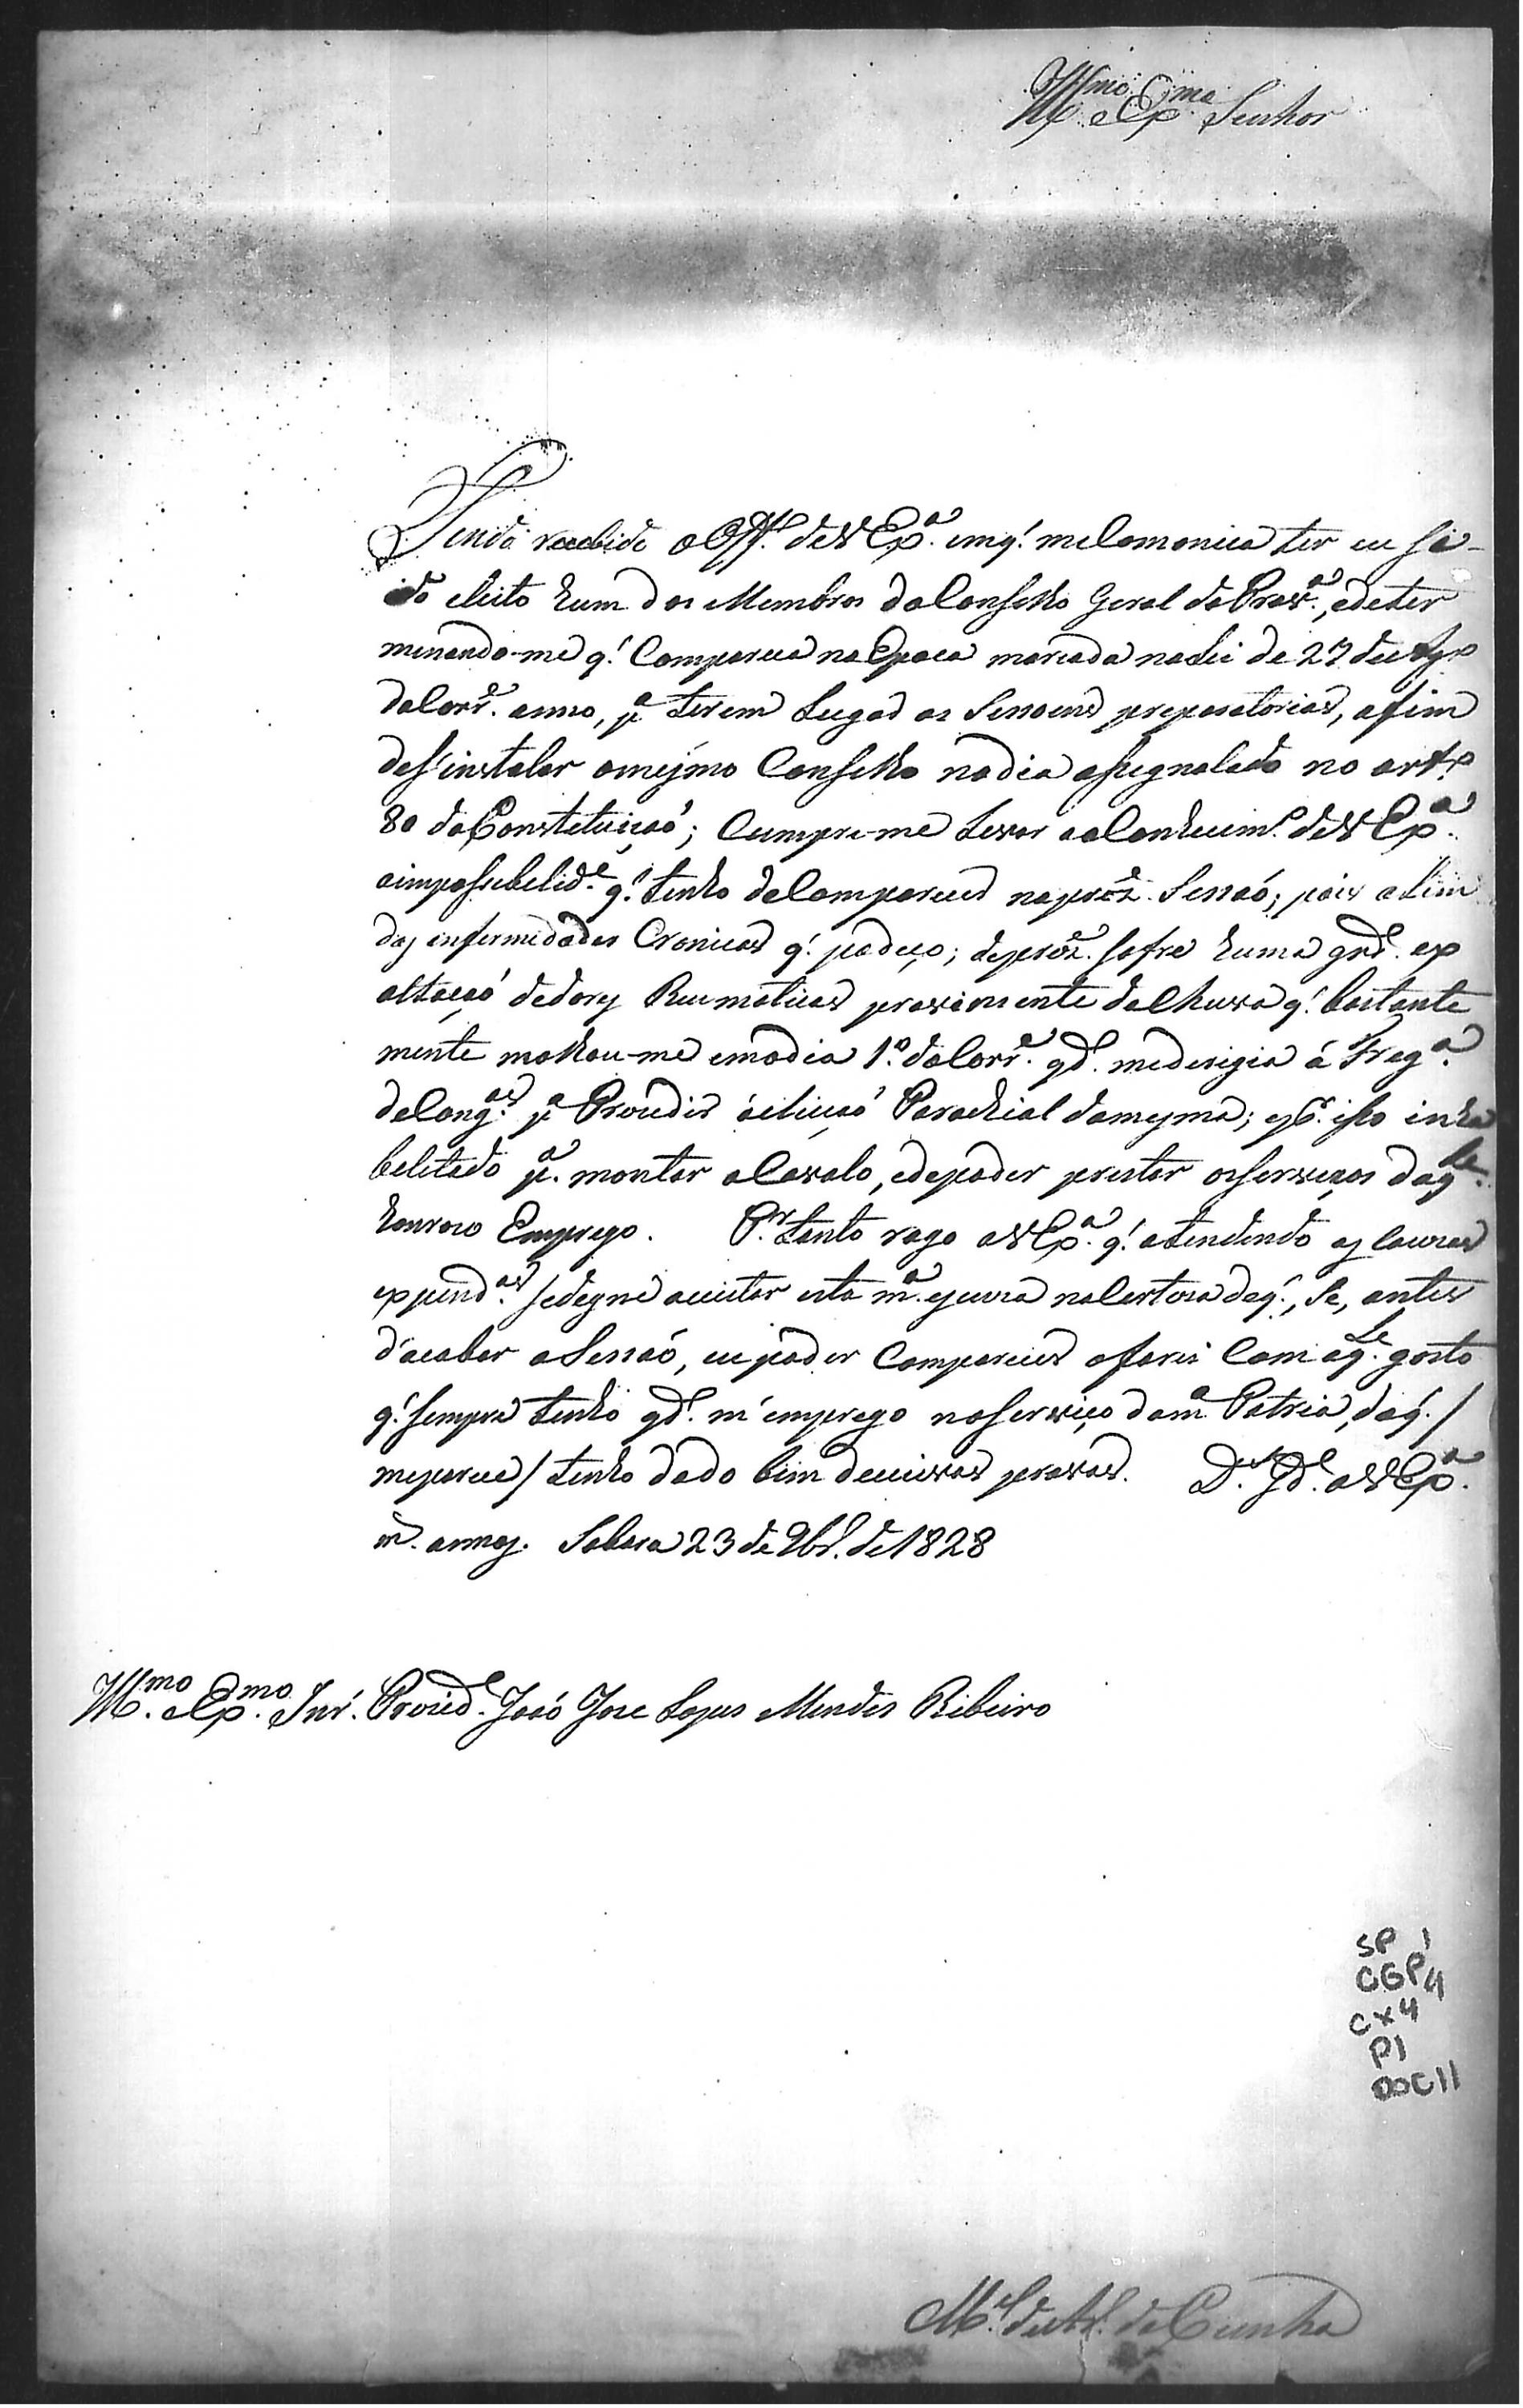 Illmo. e Exmo. Senhor
Tendo recebido o Offo. de V Exa. em q.' me Comonica ter eu si-
do eleito hum dos Membros do Conselho Geral da Prova., e deter
minando-me q.' Compareça na Epoca marcada na Lei de 27 de Agto
do Corre. anno, pa terem Lugar as Sessoens preparatorias, afim
de s'instalar o mesmo Conselho no dia assignalado no arto
80 da Constetuiçaó; Cumpre-me Levar ao Conhecimto. de V Exa.
a impossebelide. q.' tenho de Comparecer na proxe. Sessaó; pois alem
das enfermidades Cronicas q.' padeço; de proxe. sofro huma grde. ex
altaçaó de dores Reumaticas provinmente da chuva q.' bastante
mente molhou-me em o dia 1o. do Corre. qdo. me derigia á Frega.
de Congas. pa Proceder á eleiçaó Parochial da mesma; e pr. isso inha
belitado pa. montar a Cavalo, e de poder prestar os serviços daqle.
honroso Emprego. Pr. tanto rogo a V Exa. q.' atendendo as cauzas
expendas. se degne aceitar esta ma. escuza na Certeza de q.', se, antes
d'acabar a Sessaó, eu poder Comparecer o farei Com aqle. gosto
q.' sempre tenho qdo. m'emprego no serviço da ma Patria, da q.' /
me parece / tenho dado bem decisivas provas. Ds. Gde. a V Exa.
ms. annos. Sabara 23 de 9br.o de 1828
Illmo. e Exmo. Snr. Prezide. Joaó Joze Lopes Mendes Ribeiro
SP 1
CGP4
CX4
P1
DOC11
Mel. da Cunha